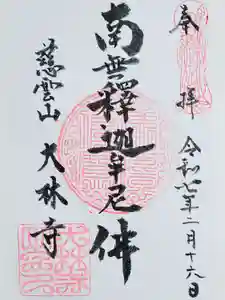 奉拝
令和七年二月十六日
南無釋迦牟尼佛
慈雲山 大林寺